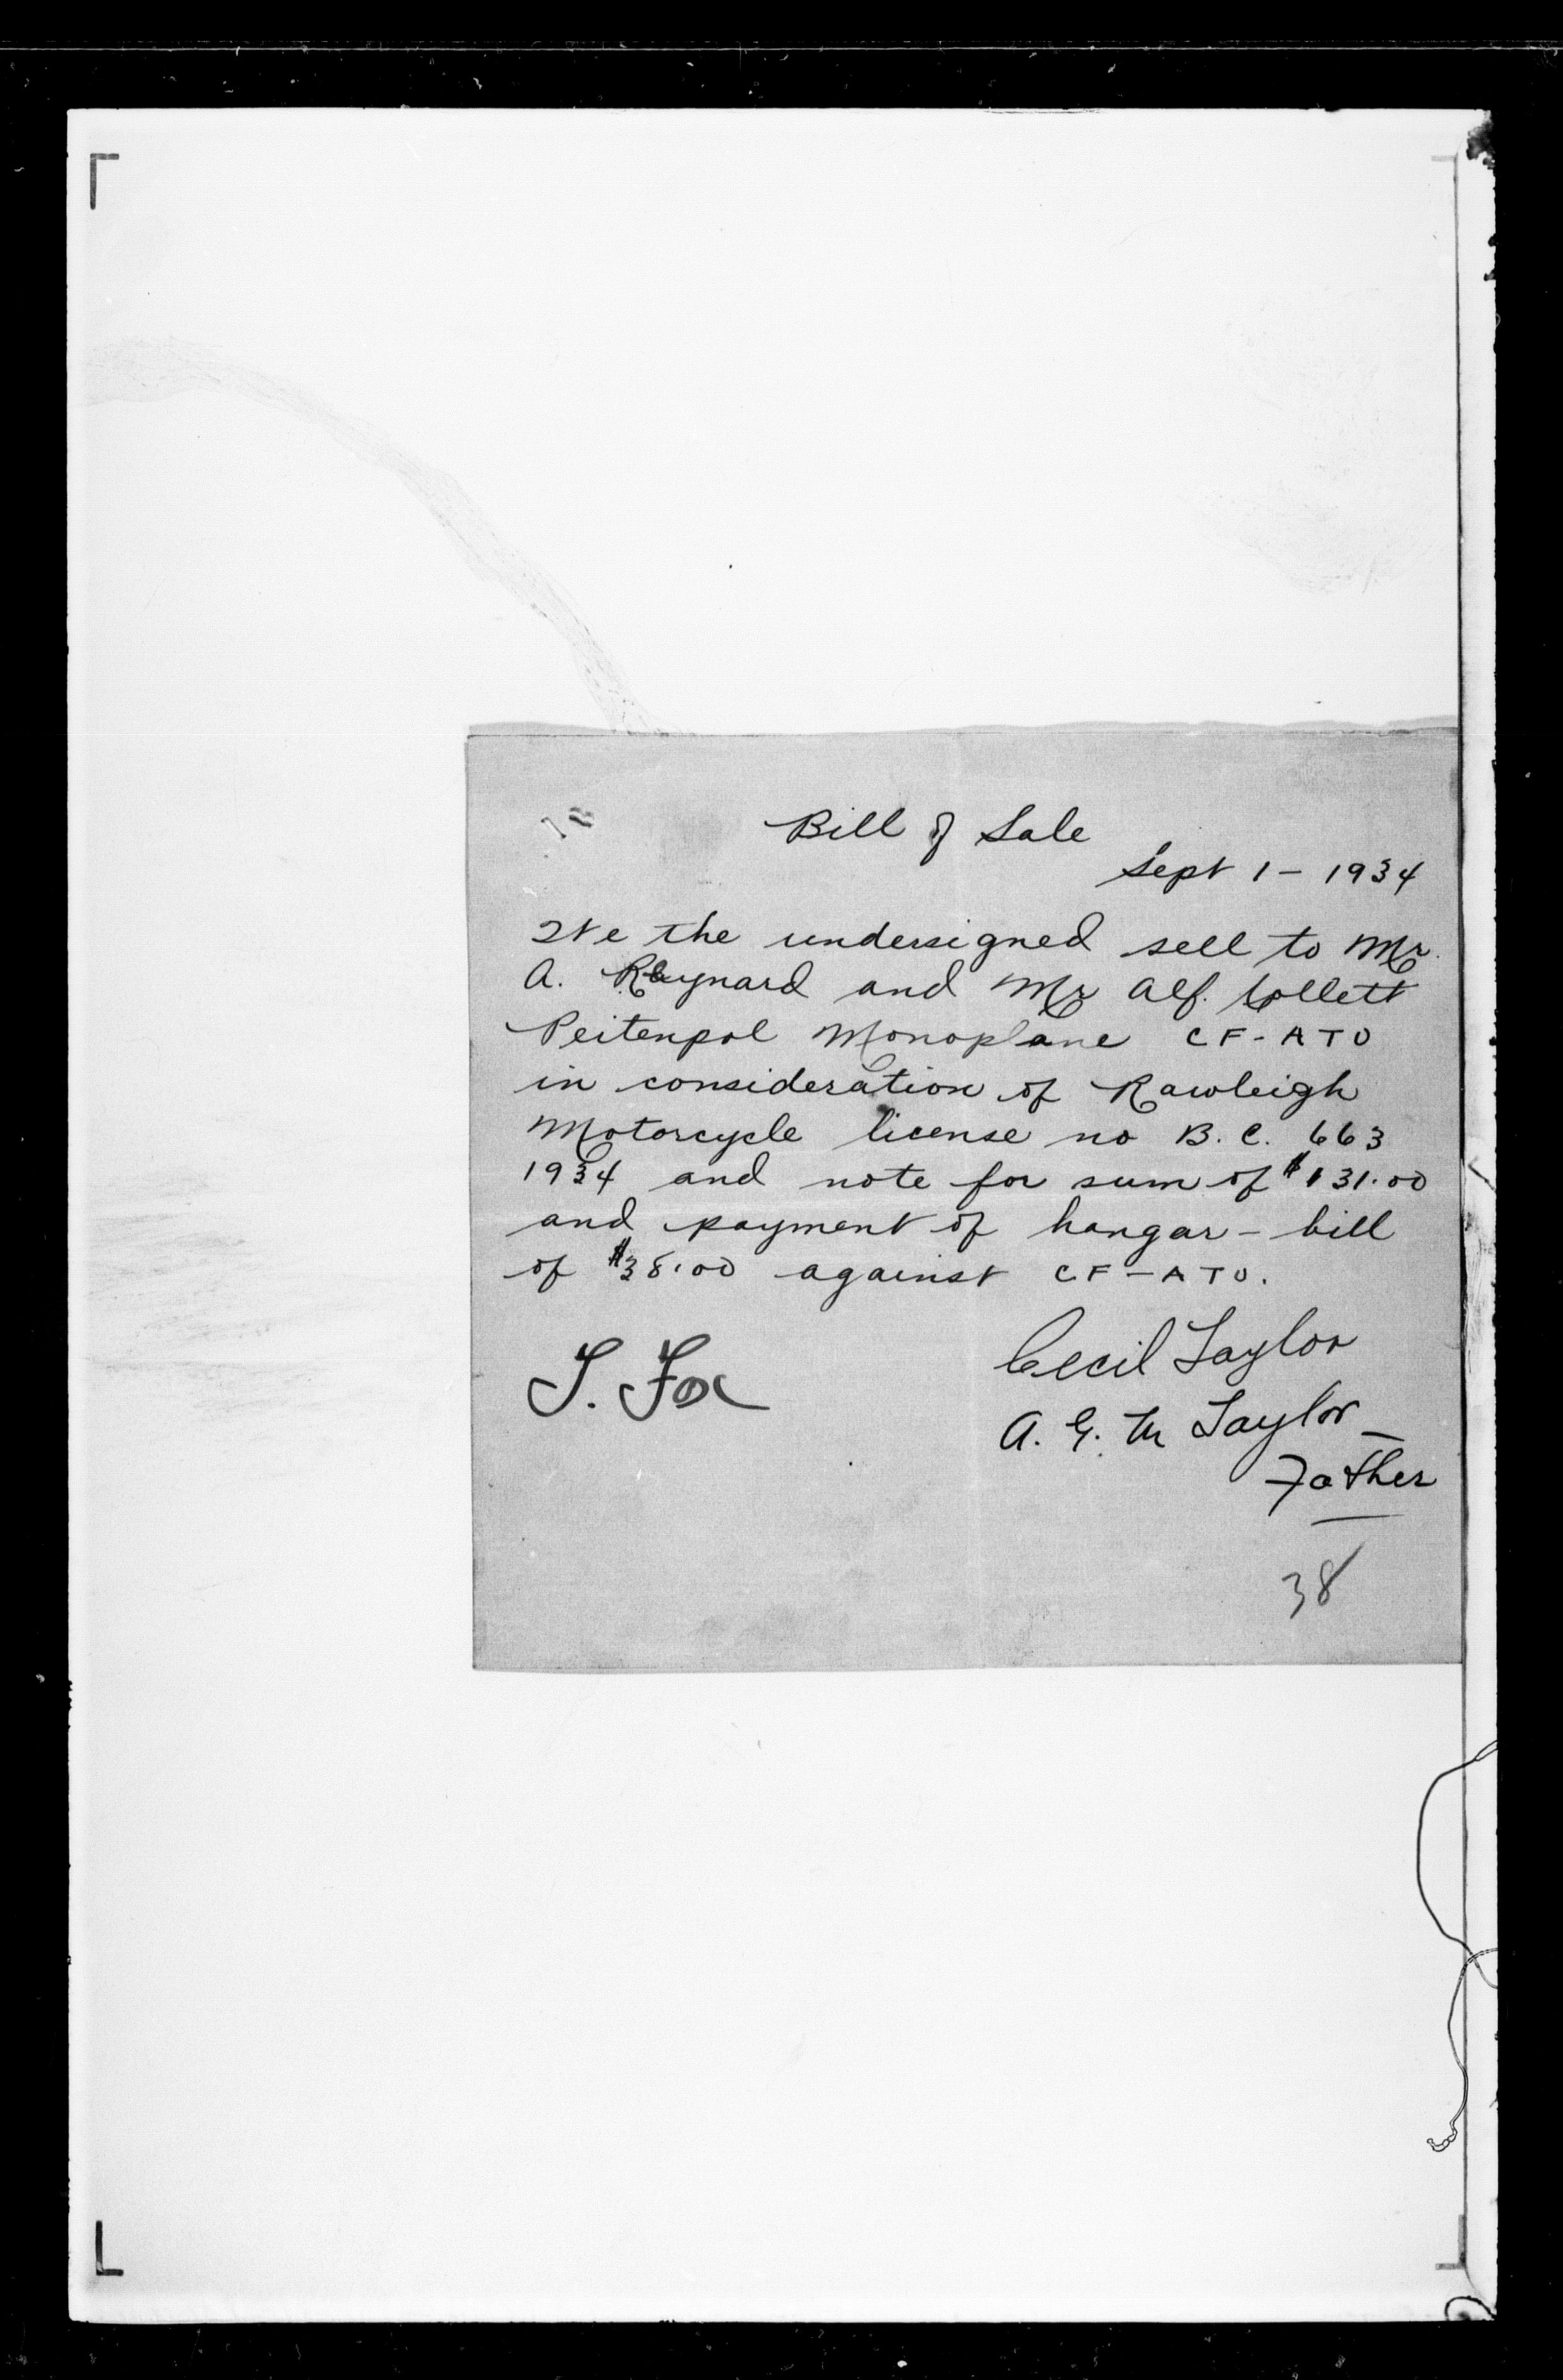 Bill of Sale
Sept 1 - 1934
We the undersigned sell to Mr.
A. Reynard and Mr Alf. Collett
Peitenpol Monoplane CF-ATO
in consideration of Rawleigh
Motorcycle license no B.C. 663
1934 and note for sum of $131.00
and payment of hangar - bill
of $38.00 against CF-ATO.
T. Fox
Cecil Taylor
A. G. M Taylor
Father
38